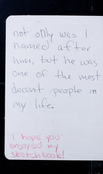 not only was I
named after
him, but he was
one of the most
decent people in
my life.
I hope you
enjoyed my
sketchbook!